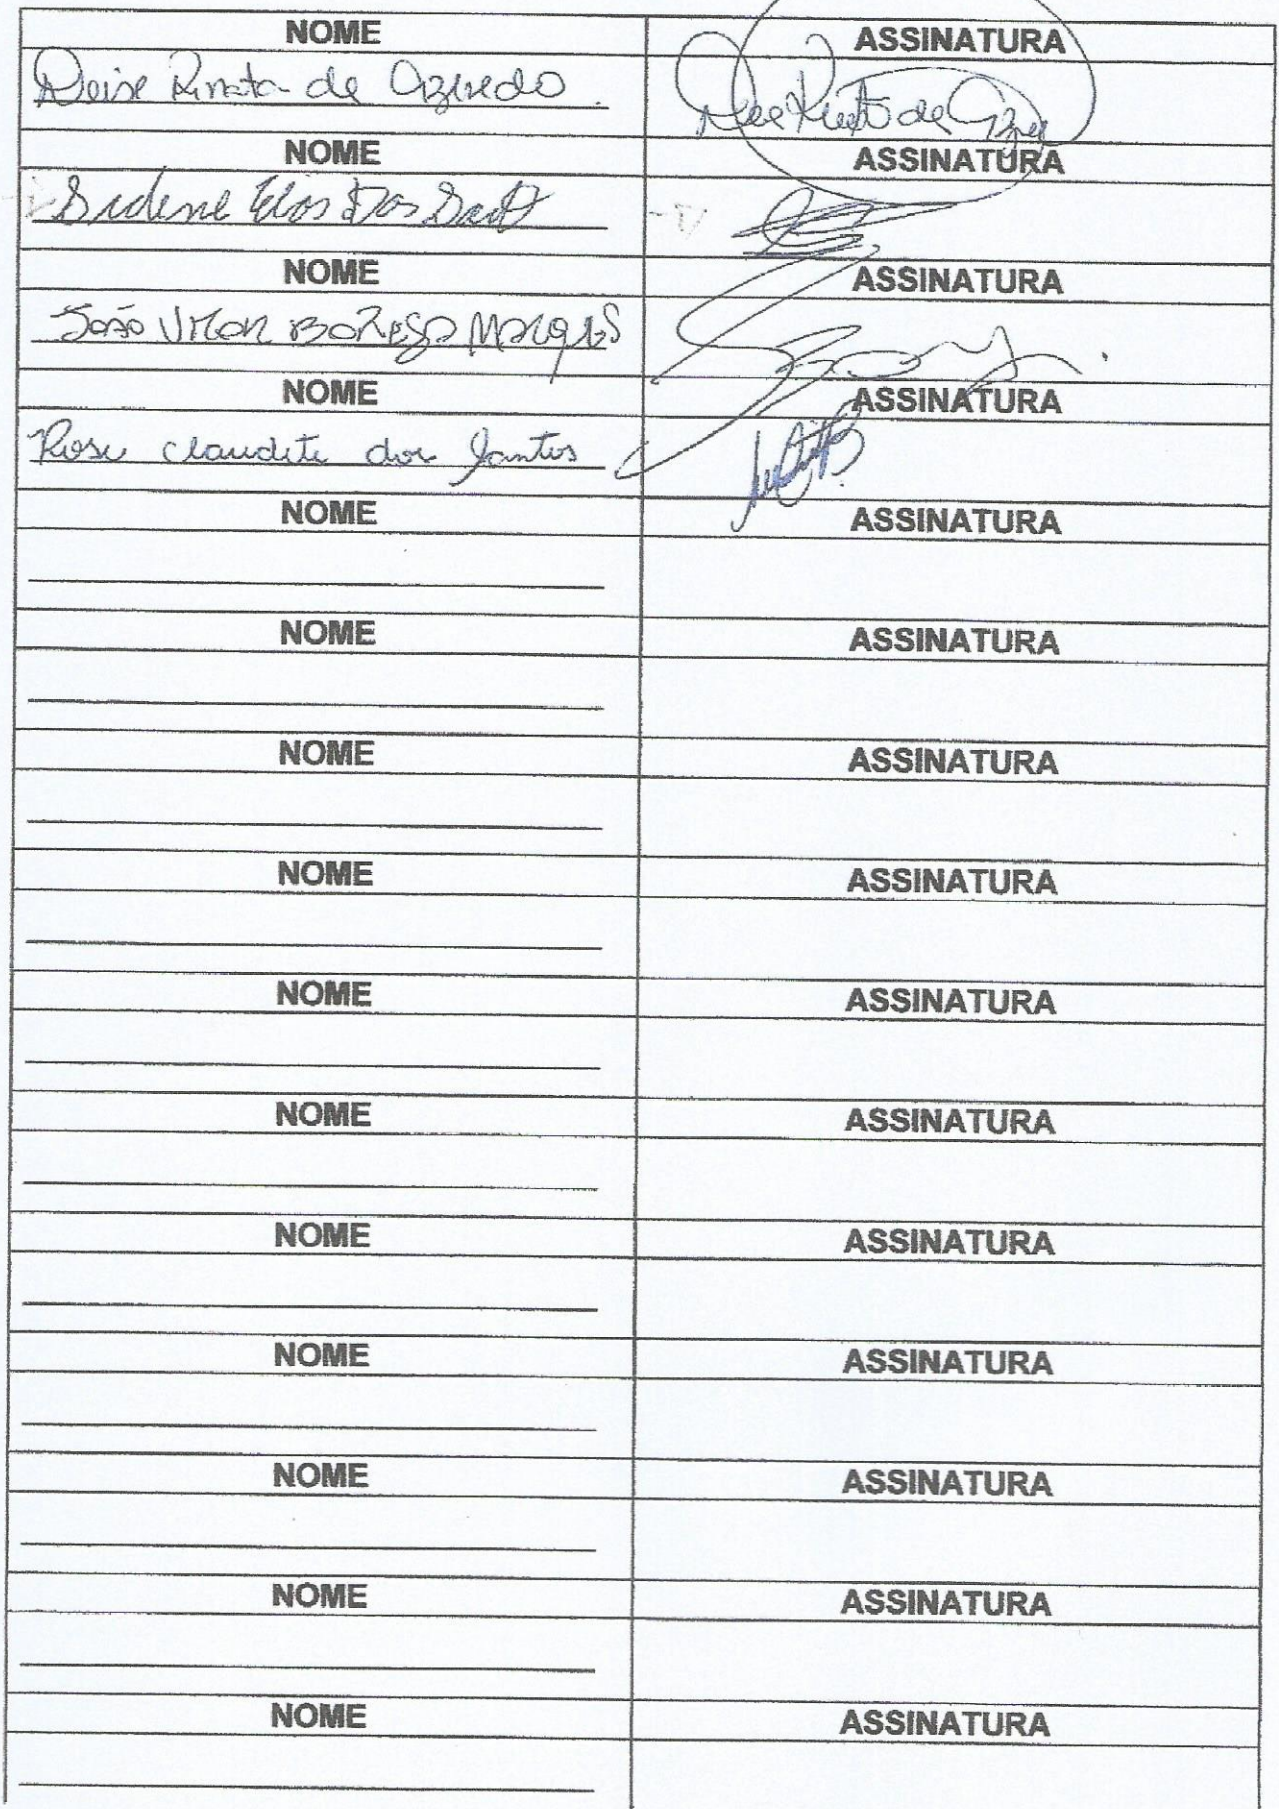 NOME ASSINATURA
Deise Renata de Azevedo.
NOME ASSINATURA
Dos
NOME ASSINATURA
João Vitor Marques
NOME ASSINATURA
Rose Claudete dos Santos
NOME ASSINATURA
NOME ASSINATURA
NOME ASSINATURA
NOME ASSINATURA
NOME ASSINATURA
NOME ASSINATURA
NOME ASSINATURA
NOME ASSINATURA
NOME ASSINATURA
NOME ASSINATURA
NOME ASSINATURA